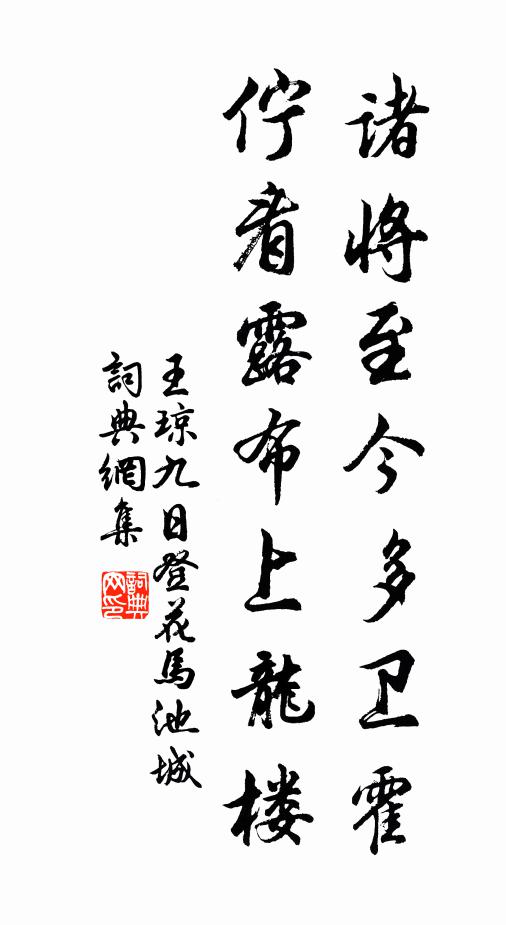 诸将至今多卫霍
佇看露布上龍楼
王琼九日登花馬池城
詞典網集
詞典网印